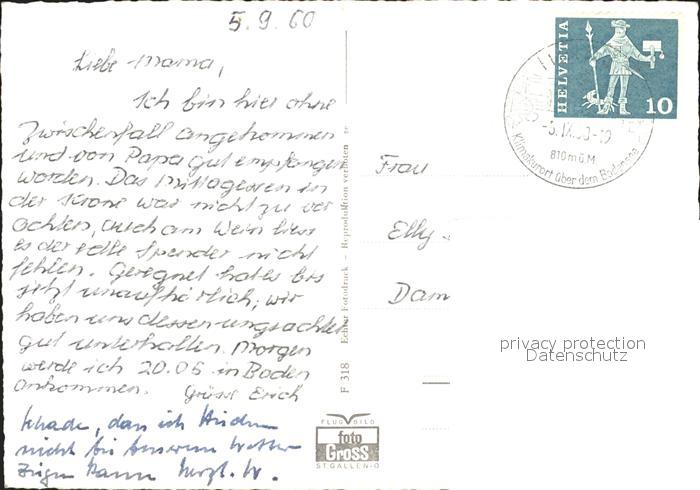 5.9.60
Liebe Mama,
Ich bin hier ohne
Zwischenfall angekommen
und von Papa gut empfangen
worden. Das Mittagessen in
der Krone war nicht zu ver
achten, auch am Wein liess
es der edle Spender nicht
fehlen. Geregnet hat es bis
jetzt unaufhörlich, wir
haben uns dessen ungeachtet
gut unterhalten. Morgen
werde ich 20.05 in Baden
ankommen. Grüsse Erich
Schade, dan ich
nicht bei besserem Wetter
zeigen kann Herzl. W.
F 318 Echter Fotodruck – Reproduktion verboten
Frau
Elly
Dam
HELVETIA
10
810 m ü. M
Klimakurort über dem Bodensee
privacy protection
Datenschutz
FLUGBILD
foto
GROSS
ST. GALLEN-O